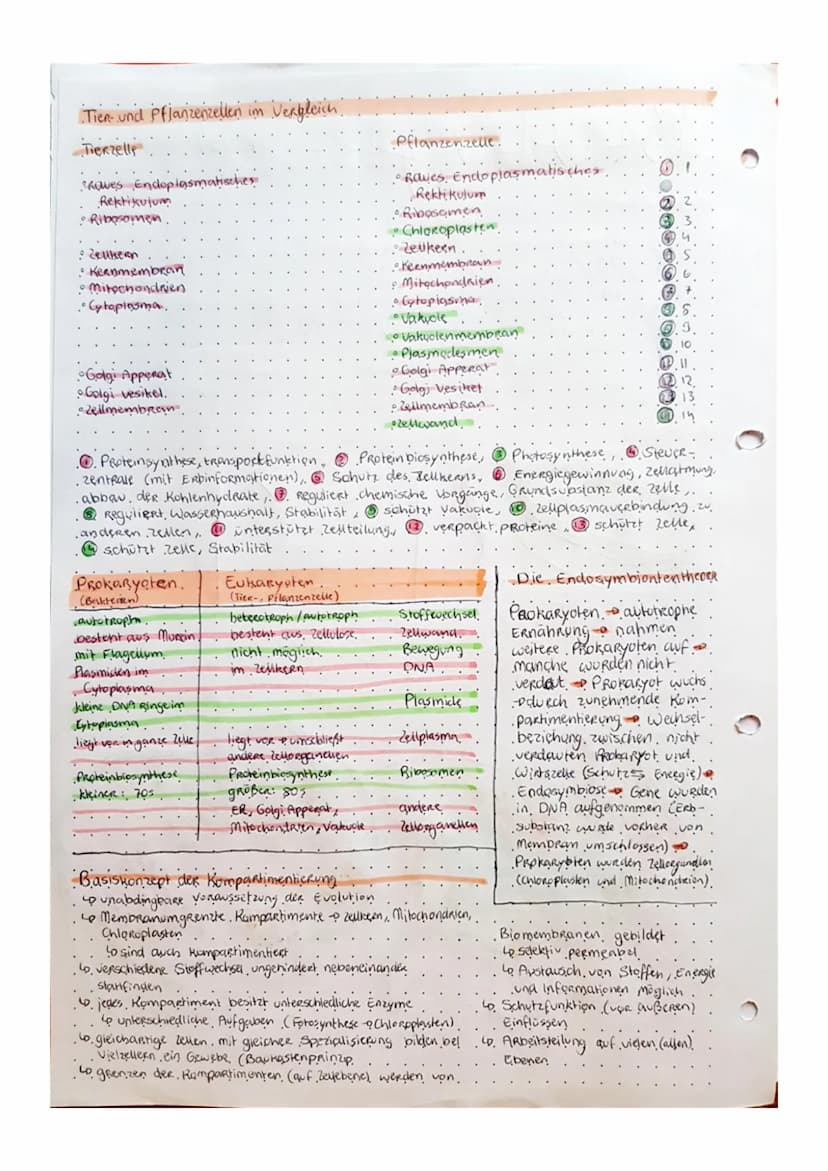 Tier- und Pflanzenzellen im Vergleich
Tierzelle
° Raues Endoplasmatisches
Rektikulum
° Ribosomen
° Zellkern
° Kernmembran
° Mitochondrien
° Cytoplasma
° Golgi Apperat
° Golgi Vesikel
° Zellmembran
Pflanzenzelle
° Raues Endoplasmatisches
Rektikulum
° Ribosomen
° Chloroplasten
° Zellkern
° Kernmembran
° Mitochondrien
° Cytoplasma
° Vakuole
° Vakuolenmembran
° Plasmodesmen
° Golgi Apperat
° Golgi Vesikel
° Zellmembran
° Zellwand
① 1
② 2
③ 3
④ 4
⑤ 5
⑥ 6
⑦ 7
⑧ 8
⑨ 9
⑩ 10
⑪ 11
⑫ 12
⑬ 13
⑭ 14
① Proteinsynthese, transportfunktion, ② Proteinbiosynthese, ③ Photosynthese, ④ Steuer-
zentrale (mit Erbinformationen), ⑤ Schutz des Zellkerns, ⑥ Energiegewinnung, Zellatmung,
abbau der Kohlenhydrate, ⑦ reguliert chemische Vorgänge, Grundsubstanz der Zelle,
⑧ Reguliert Wasserhaushalt, Stabilität, ⑨ schützt Vakuole, ⑩ Zellplasmaverbindung zu
anderen Zellen, ⑪ unterstützt Zellteilung, ⑫ verpackt Proteine, ⑬ schützt Zelle,
⑭ schützt Zelle, Stabilität
Prokaryoten | Eukaryoten
(Bakterien) | (Tier-, Pflanzenzelle)
autotroph | heterotroph/autotroph Stoffwechsel
besteht aus Murein | besteht aus Zellulose Zellwand
mit Flagellum | nicht möglich Bewegung
Plasmiden im | im Zellkern DNA
Cytoplasma
kleine DNA Ringe im | Plasmide
Cytoplasma
liegt vor in ganze Zelle | liegt vor → umschließt Zellplasma
andere Zellorganellen
Proteinbiosynthese | Proteinbiosynthese Ribosomen
kleiner: 70s | größer: 80s
ER, Golgi Apperat, andere
Mitochondrien, Vakuole Zellorganellen
Die Endosymbiontentheorie
Prokaryoten → autotrophe
Ernährung → nahmen
weitere Prokaryoten auf →
manche wurden nicht
verdaut → Prokaryot wuchs
→ durch zunehmende Kom-
partimentierung → Wechsel-
beziehung zwischen nicht
verdauten Prokaryot und
Wirtszelle (Schutz ⇆ Energie) →
Endosymbiose → Gene wurden
in DNA aufgenommen (Erb-
substanz wurde vorher von
Membran umschlossen) →
Prokaryoten wurden Zellorganellen
(Chloroplasten und Mitochondrien)
Basiskonzept der Kompartimentierung
↳ unabdingbare Voraussetzung der Evolution
↳ Membranumgrenzte Kompartimente → Zellkern, Mitochondrien,
Chloroplasten
↳ sind auch kompartimentiert
↳ verschiedene Stoffwechsel ungehindert nebeneinander
stattfinden
↳ jedes Kompartiment besitzt unterschiedliche Enzyme
↳ unterschiedliche Aufgaben (Fotosynthese → Chloroplasten)
↳ gleichartige Zellen mit gleicher Spezialisierung bilden bei
Vielzellern ein Gewebe (Baukastenprinzip
↳ grenzen der Kompartimenten (auf Zellebene) werden von
Biomembranen gebildet
↳ selektiv permeabel
↳ Austausch von Stoffen, Energie
und Informationen möglich
↳ Schutzfunktion (vor äußeren)
Einflüssen
↳ Arbeitsteilung auf vielen (allen)
Ebenen